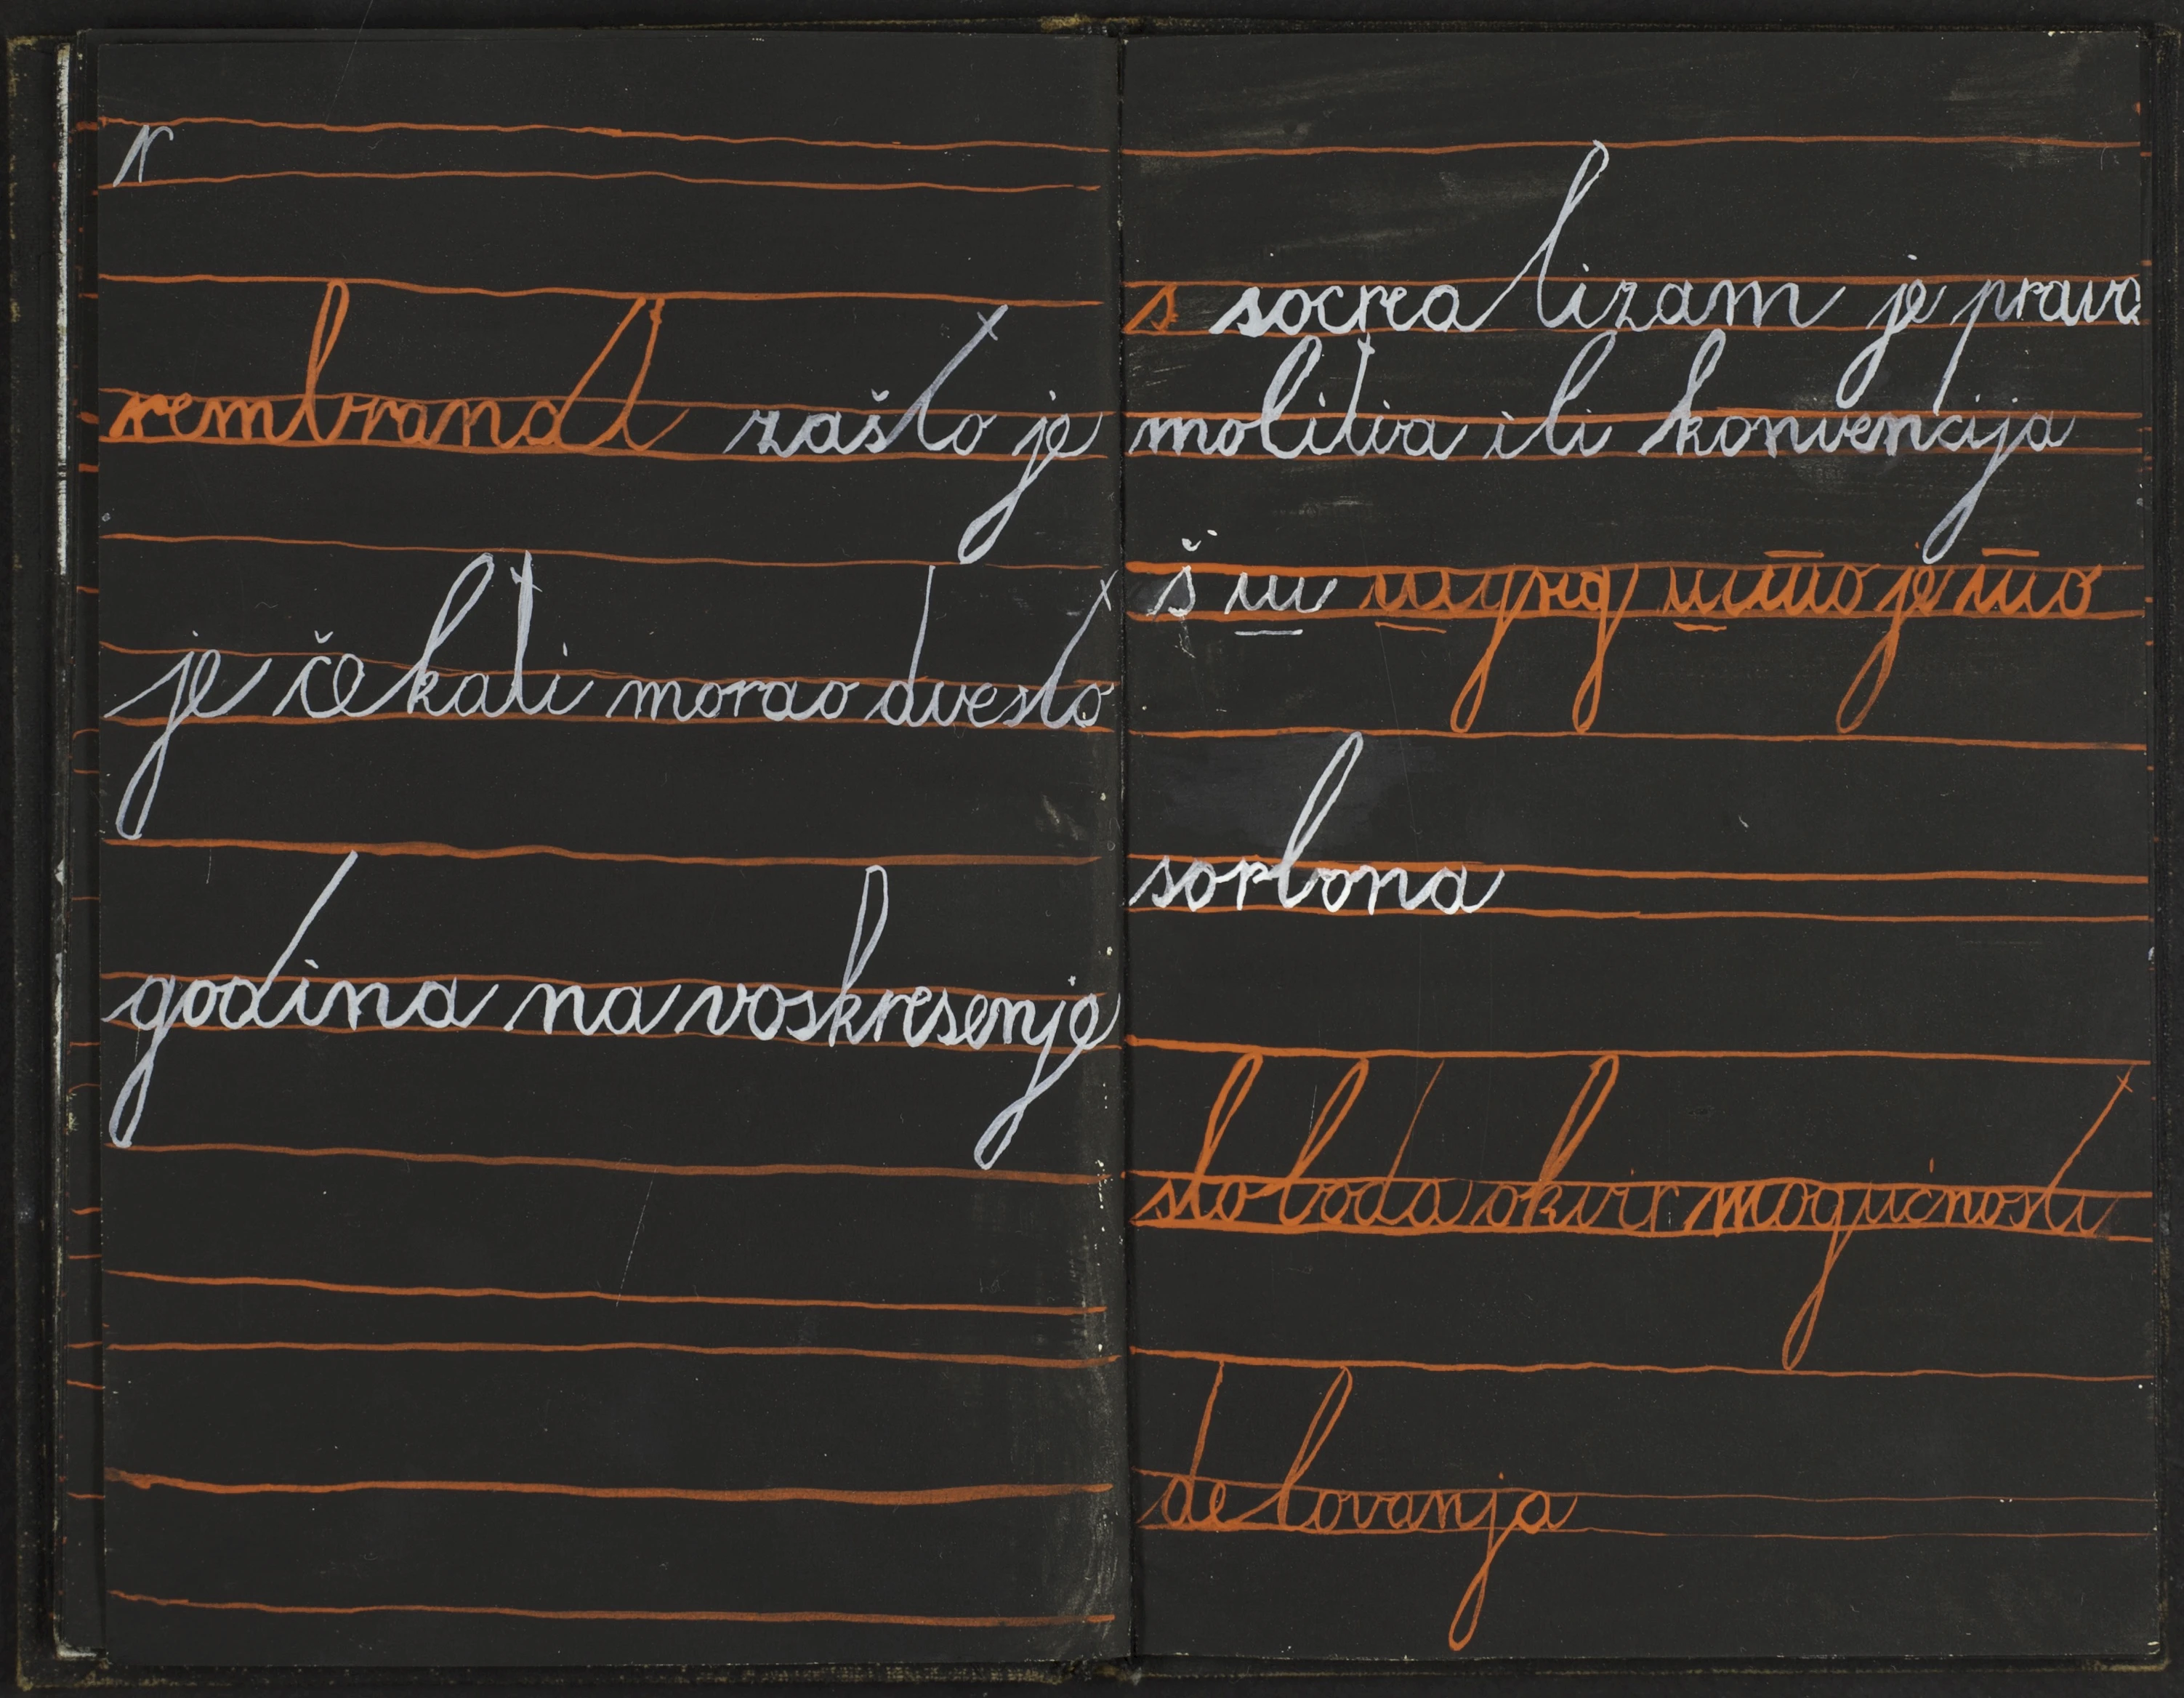 r
rembrandt zašto je
je čekati morao dvesto
godina na voskresenje
s socrealizam je prava
molitva ili konvencija
š ш што је што
sorbona
sloboda okvir mogućnosti
delovanja